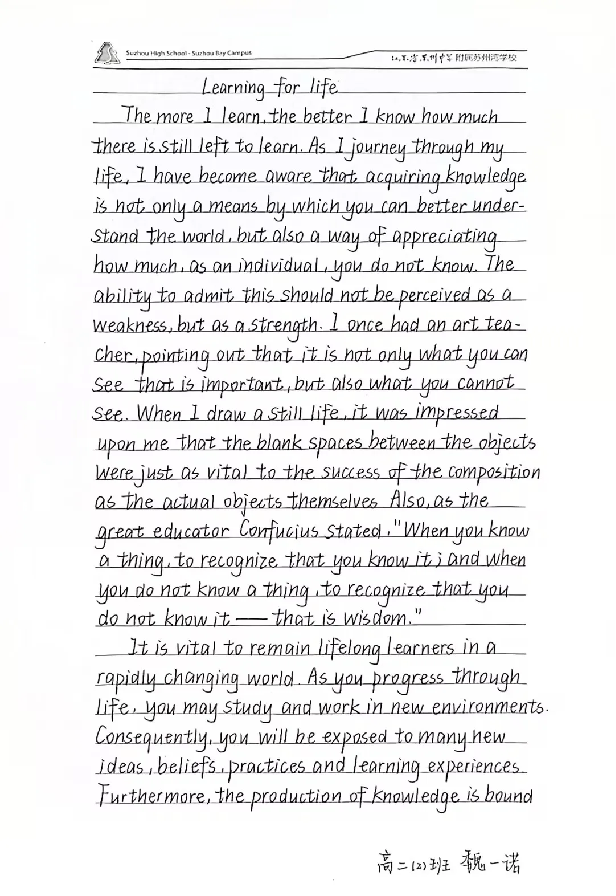 Suzhou High School - Suzhou Bay Campus
江苏省苏州中学附属苏州湾学校
Learning for life
The more I learn, the better I know how much
there is still left to learn. As I journey through my
life, I have become aware that acquiring knowledge
is not only a means by which you can better under-
stand the world, but also a way of appreciating
how much, as an individual, you do not know. The
ability to admit this should not be perceived as a
weakness, but as a strength. I once had an art tea-
cher, pointing out that it is not only what you can
see that is important, but also what you cannot
see. When I draw a still life, it was impressed
upon me that the blank spaces between the objects
were just as vital to the success of the composition
as the actual objects themselves. Also, as the
great educator Confucius stated, "When you know
a thing, to recognize that you know it; and when
you do not know a thing, to recognize that you
do not know it — that is wisdom."
It is vital to remain lifelong learners in a
rapidly changing world. As you progress through
life, you may study and work in new environments.
Consequently, you will be exposed to many new
ideas, beliefs, practices and learning experiences.
Furthermore, the production of knowledge is bound
高二(2)班 魏一诺